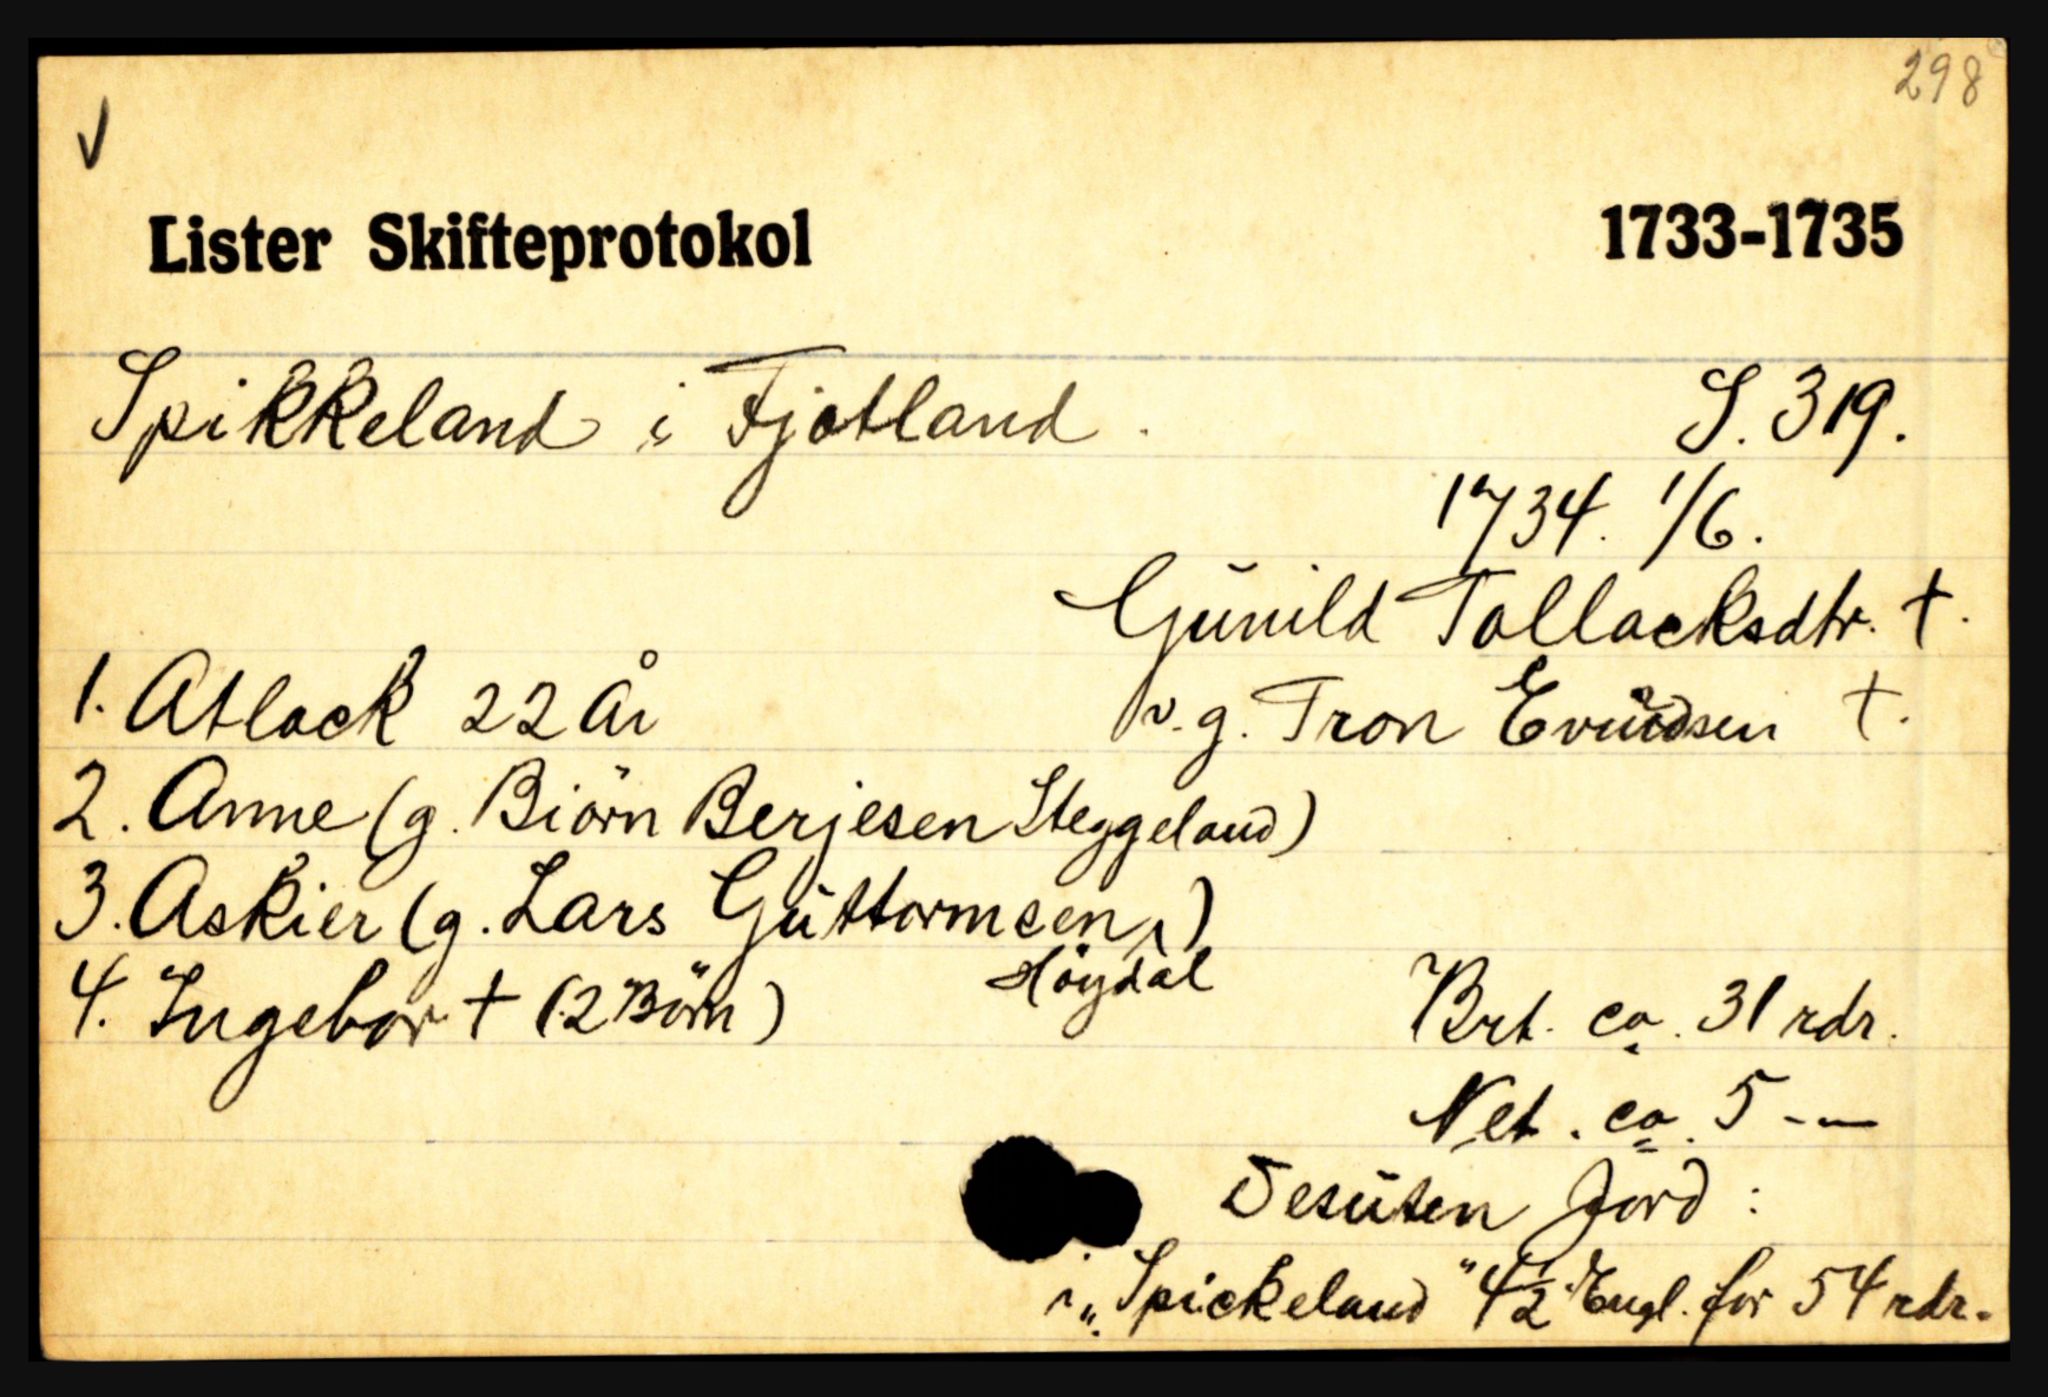 298
V
Lister Skifteprotokol 1733-1735
Spikkeland i Fjotland. S. 319.
1734. 1/6.
Gŭnild Tollacksdtr. †.
1. Atlack 22 År v. g. Tron Evŭndsen †.
2. Anne (g. Biörn Berjesen Steggeland)
3. Askier (g. Lars Gŭttormsen,)
Höydal
4. Ingebor † (2 Börn) Brt. ca. 31 rdr.
Net. ca. 5 -—
Desŭten Jord:
i „Spickeland" 4½ Engl. for 54 rdr.